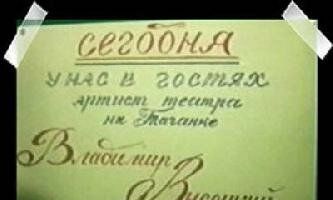 СЕГОДНЯ
У НАС В ГОСТЯХ
артист театра
на Таганке
Владимир
Высоцкий